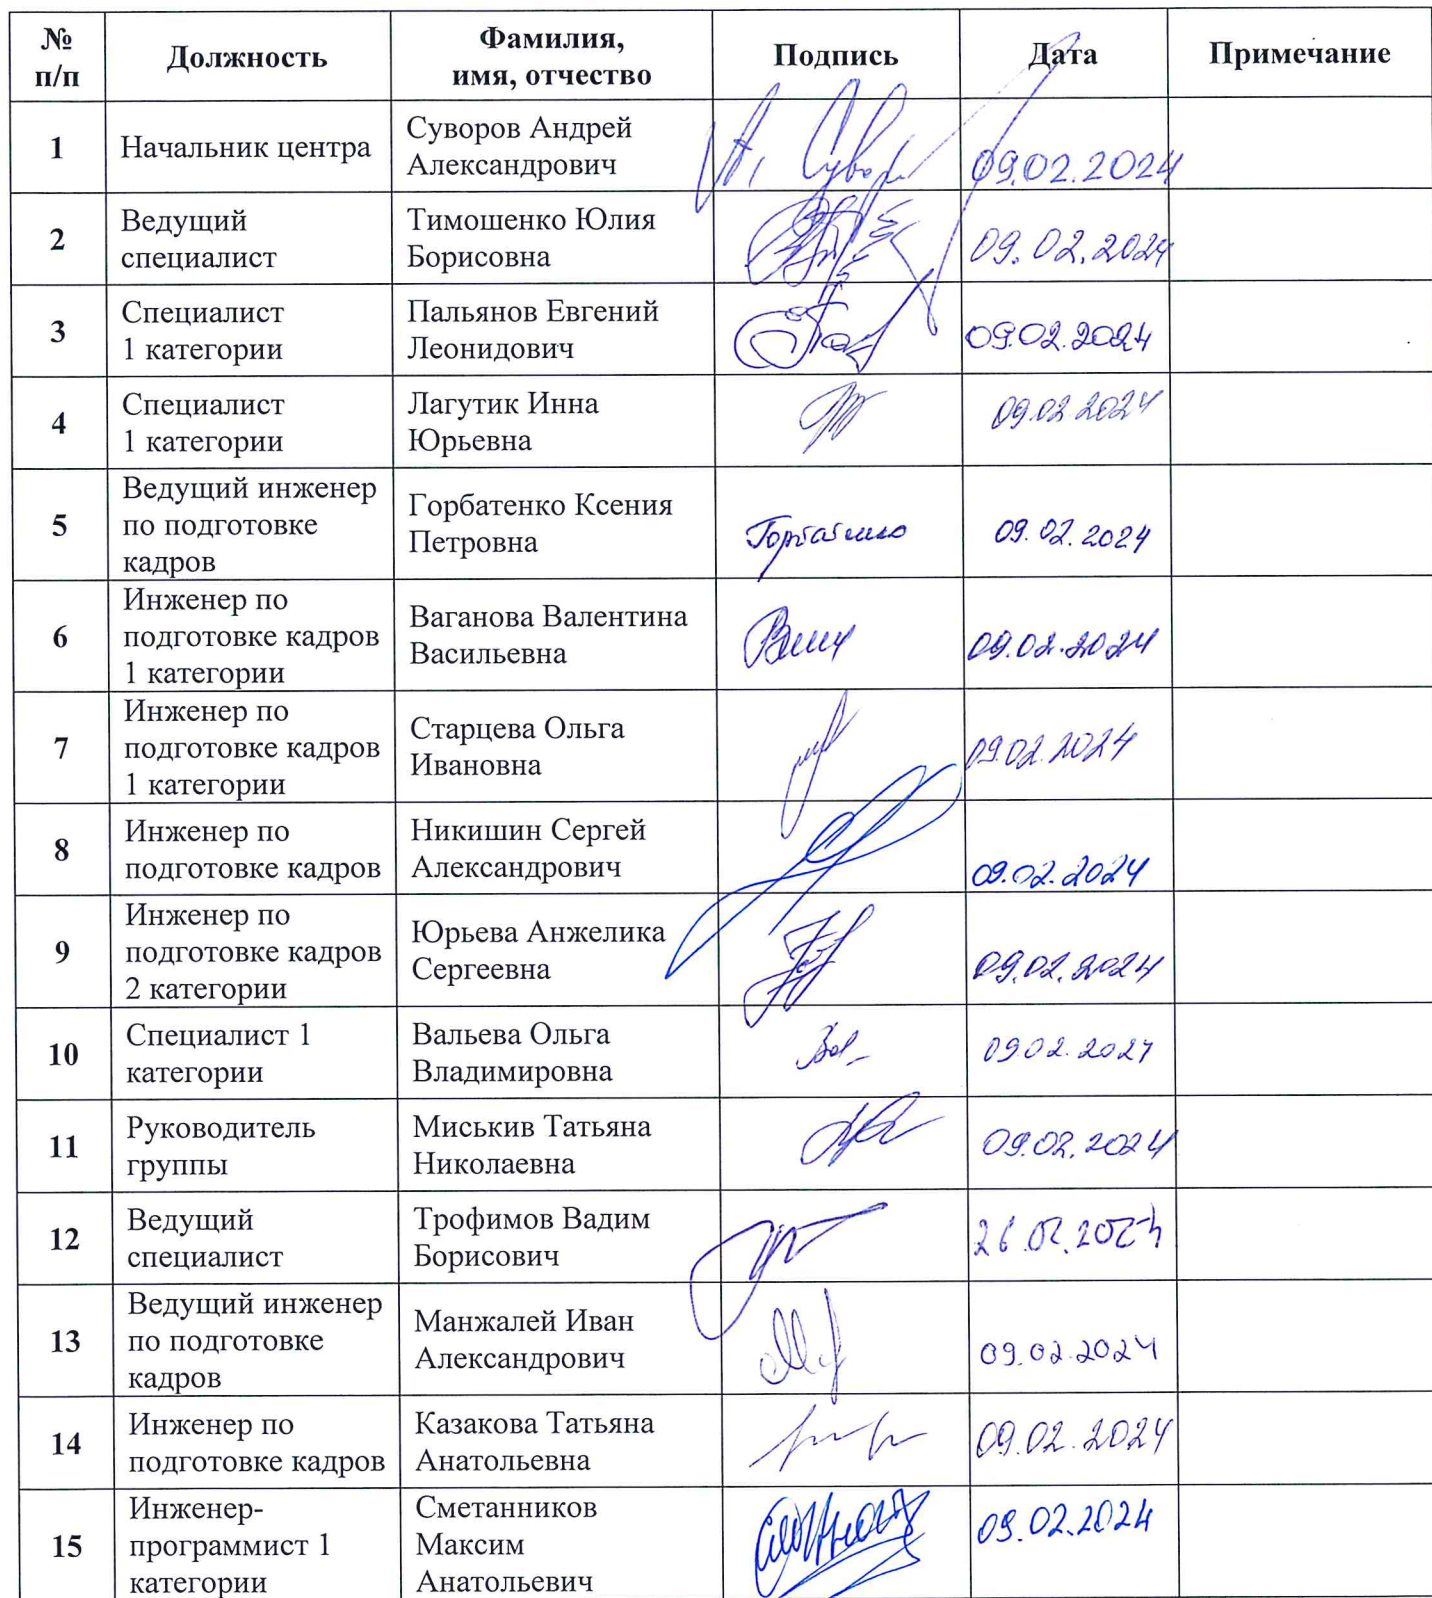 № п/п Должность Фамилия, имя, отчество Подпись Дата Примечание
1 Начальник центра Суворов Андрей Александрович А. Сувор 09.02.2024
2 Ведущий специалист Тимошенко Юлия Борисовна 09.02.2024
3 Специалист 1 категории Пальянов Евгений Леонидович 09.02.2024
4 Специалист 1 категории Лагутик Инна Юрьевна 09.02.2024
5 Ведущий инженер по подготовке кадров Горбатенко Ксения Петровна Горбатенко 09.02.2024
6 Инженер по подготовке кадров 1 категории Ваганова Валентина Васильевна 09.02.2024
7 Инженер по подготовке кадров 1 категории Старцева Ольга Ивановна 09.02.2024
8 Инженер по подготовке кадров Никишин Сергей Александрович 09.02.2024
9 Инженер по подготовке кадров 2 категории Юрьева Анжелика Сергеевна 09.02.2024
10 Специалист 1 категории Вальева Ольга Владимировна 09.02.2024
11 Руководитель группы Миськив Татьяна Николаевна 09.02.2024
12 Ведущий специалист Трофимов Вадим Борисович 26.02.2024
13 Ведущий инженер по подготовке кадров Манжалей Иван Александрович 09.02.2024
14 Инженер по подготовке кадров Казакова Татьяна Анатольевна 09.02.2024
15 Инженер-программист 1 категории Сметанников Максим Анатольевич 09.02.2024